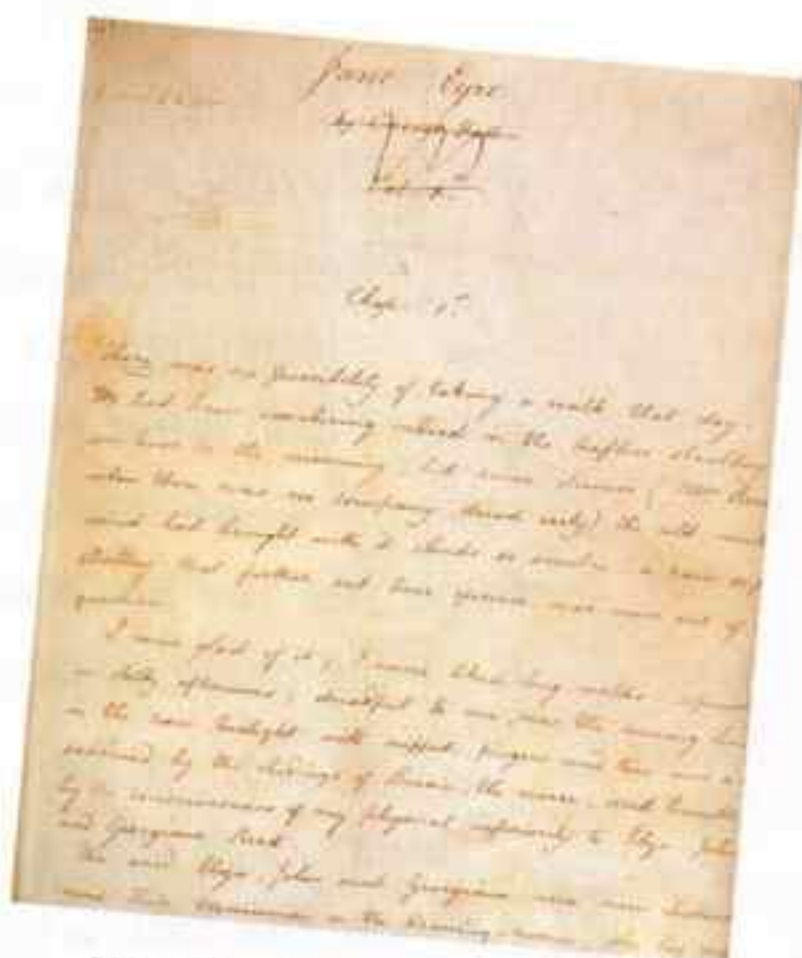 Jane Eyre
by
Chap. 1st
There was no possibility of taking a walk that day.
We had been wandering indeed in the leafless shrubbery
an hour in the morning, but since dinner (Mrs Reed
when there was no company dined early) the cold winter
wind had brought with it clouds so sombre a rain so p
that further out door exercise was now out of
question.
I was glad of it; I never liked long walks
chilly afternoons; dreadful to me was the coming home
in the raw twilight with nipped fingers and toes and a
saddened by the chidings of Bessie, the nurse, and humbled
by the consciousness of my physical inferiority to Eliza, John
and Georgiana Reed.
The said Eliza, John and Georgiana were now
round their mamma in the drawing-room; she lay